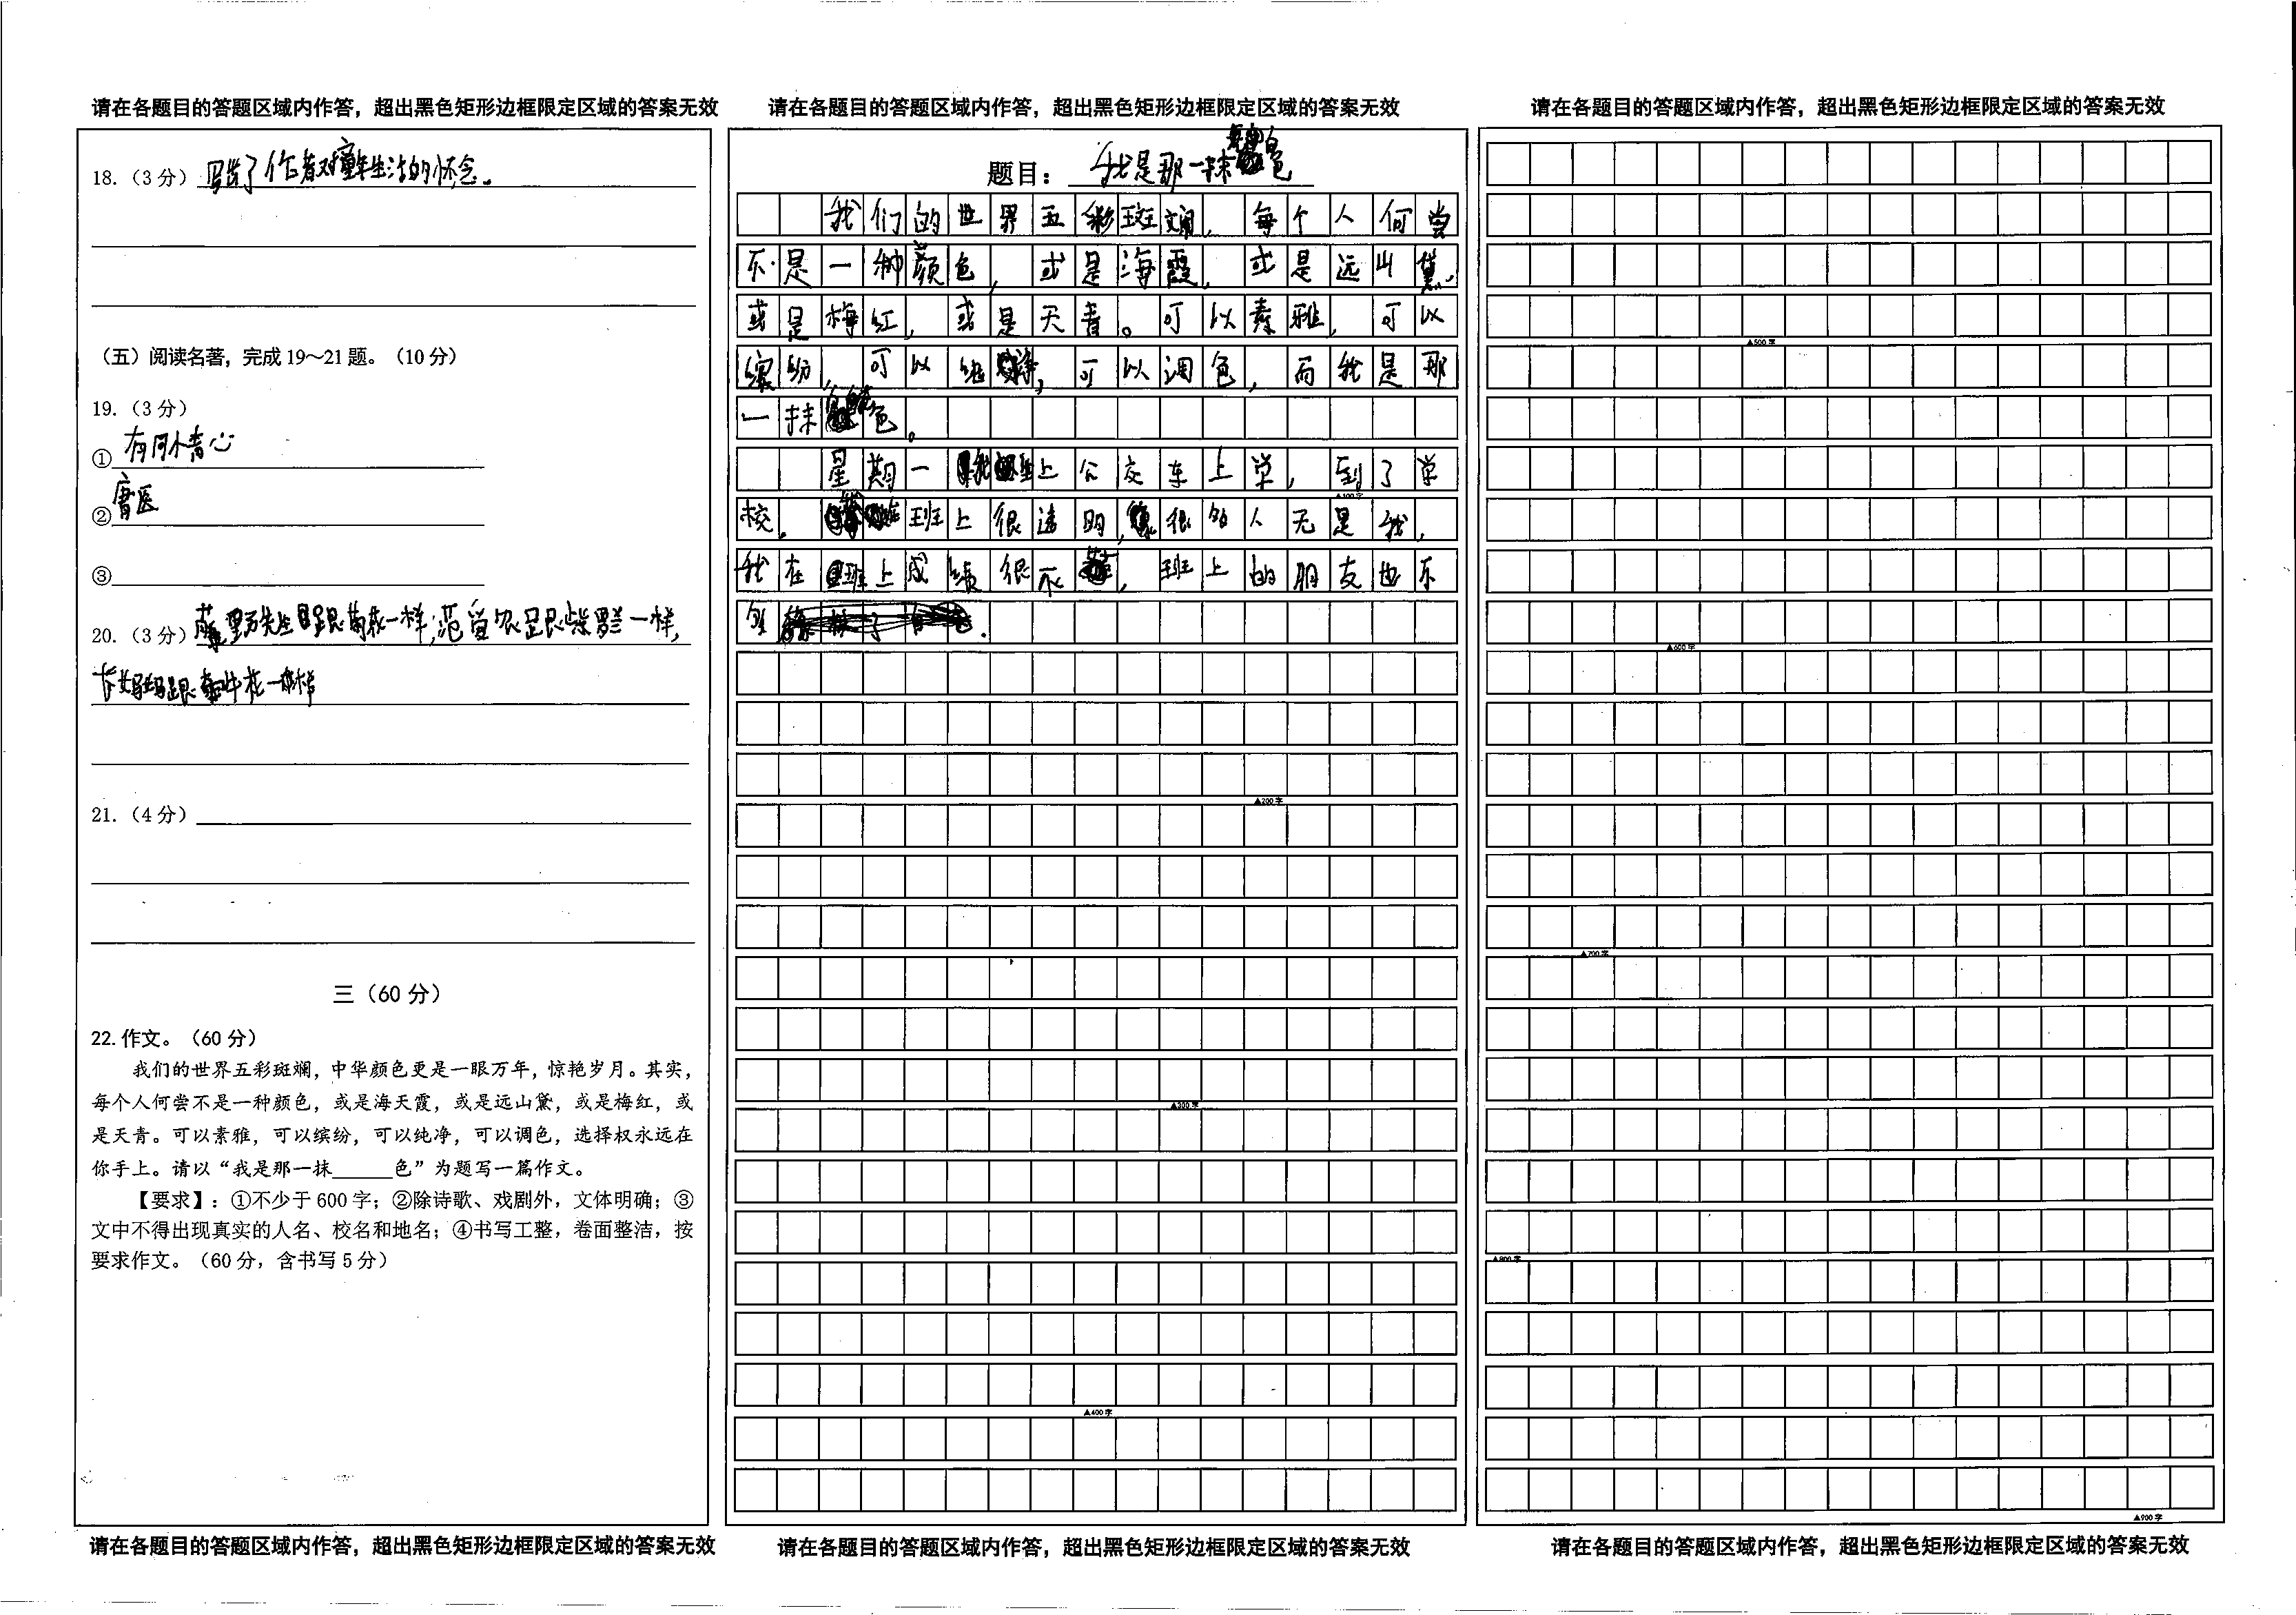 请在各题目的答题区域内作答，超出黑色矩形边框限定区域的答案无效
18.（3分）写出了作者对童年生活的怀念。
（五）阅读名著，完成19～21题。（10分）
19.（3分）
①有同小青心
②唐医
③
20.（3分）藤野先生跟菊花一样，范爱农跟紫罗兰一样，
长妈妈跟牵牛花一样
21.（4分）
三（60分）
22.作文。（60分）
我们的世界五彩斑斓，中华颜色更是一眼万年，惊艳岁月。其实，
每个人何尝不是一种颜色，或是海天霞，或是远山黛，或是梅红，或
是天青。可以素雅，可以缤纷，可以纯净，可以调色，选择权永远在
你手上。请以“我是那一抹______色”为题写一篇作文。
【要求】：①不少于600字；②除诗歌、戏剧外，文体明确；③
文中不得出现真实的人名、校名和地名；④书写工整，卷面整洁，按
要求作文。（60分，含书写5分）
请在各题目的答题区域内作答，超出黑色矩形边框限定区域的答案无效
请在各题目的答题区域内作答，超出黑色矩形边框限定区域的答案无效
题目：我是那一抹色
我们的世界五彩斑斓，每个人何尝
不是一种颜色，或是海霞，或是远山黛，
或是梅红，或是天青。可以素雅，可以
缤纷，可以纯净，可以调色，而我是那
一抹色。
星期一我坐上公交车上学，到了学
▲100字
校。班上很透明，很多人无是我，
我在班上成绩很不，班上的朋友也不
多.
▲200字
▲300字
▲400字
请在各题目的答题区域内作答，超出黑色矩形边框限定区域的答案无效
请在各题目的答题区域内作答，超出黑色矩形边框限定区域的答案无效
▲500字
▲600字
▲700字
▲800字
▲900字
请在各题目的答题区域内作答，超出黑色矩形边框限定区域的答案无效